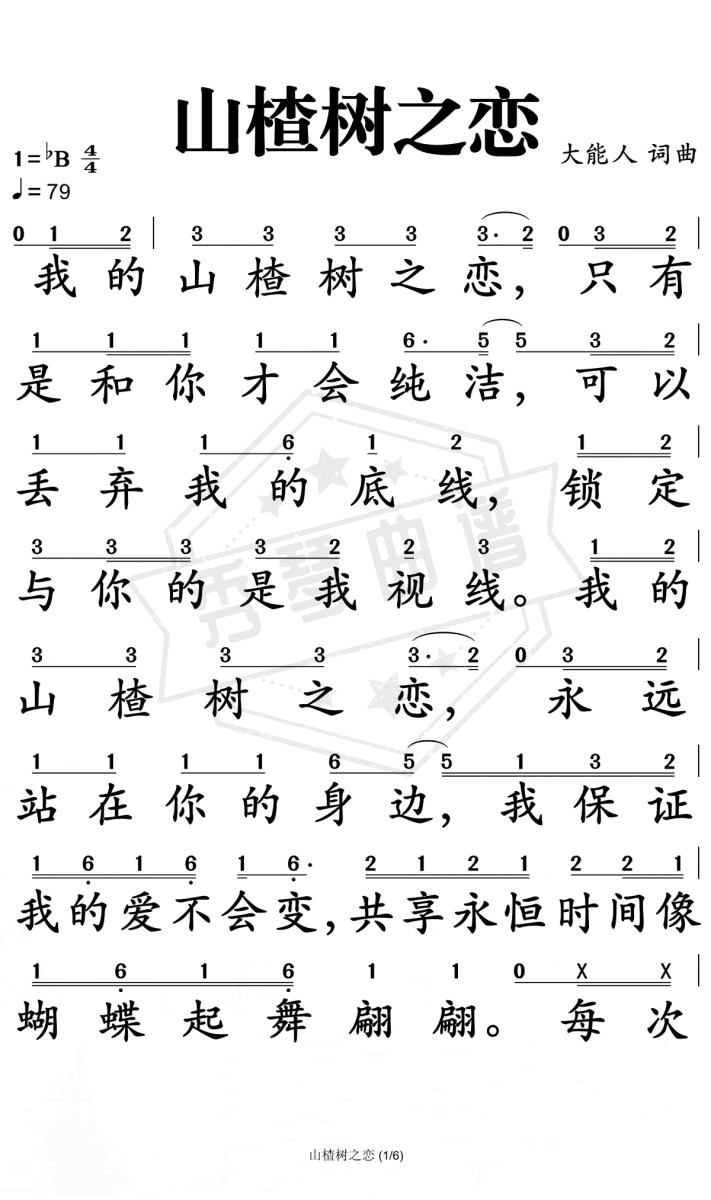 山楂树之恋
1=♭B 4/4
大能人 词曲
♩=79
0 1 2 | 3 3 3 3 3· 2 0 3 2 |
我的山楂树之恋，只有
1 1 1 1 1 6· 5 5 3 2 |
是和你才会纯洁，可以
1 1 1 6̣ 1 2 1 2 |
丢弃我的底线，锁定
3 3 3 3 2 2 3 1 2 |
与你的是我视线。我的
3 3 3 3 3· 2 0 3 2 |
山楂树之恋，永远
1 1 1 1 6 5 5 1 3 2 |
站在你的身边，我保证
1 6̣ 1 6̣ 1 6̣· 2 1 2 1 2 2 1 |
我的爱不会变，共享永恒时间像
1 6̣ 1 6̣ 1 1 0 X X |
蝴蝶起舞翩翩。每次
秀琴曲谱
山楂树之恋 (1/6)